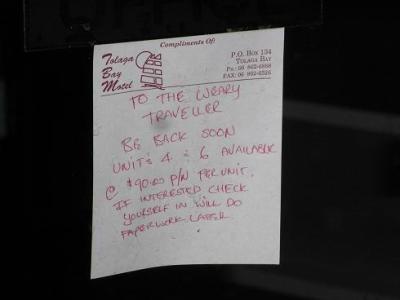 Compliments Of:
Tolaga
Bay
Motel
P.O. Box 134
Tolaga Bay
Ph: 06 862-6888
Fax: 06 862-6526
TO THE WEARY
TRAVELLER
BE BACK SOON
UNITS 4 & 6 AVAILABLE
@ $90.00 P/N PER UNIT.
IF INTERESTED CHECK
YOURSELF IN WILL DO
PAPERWORK LATER